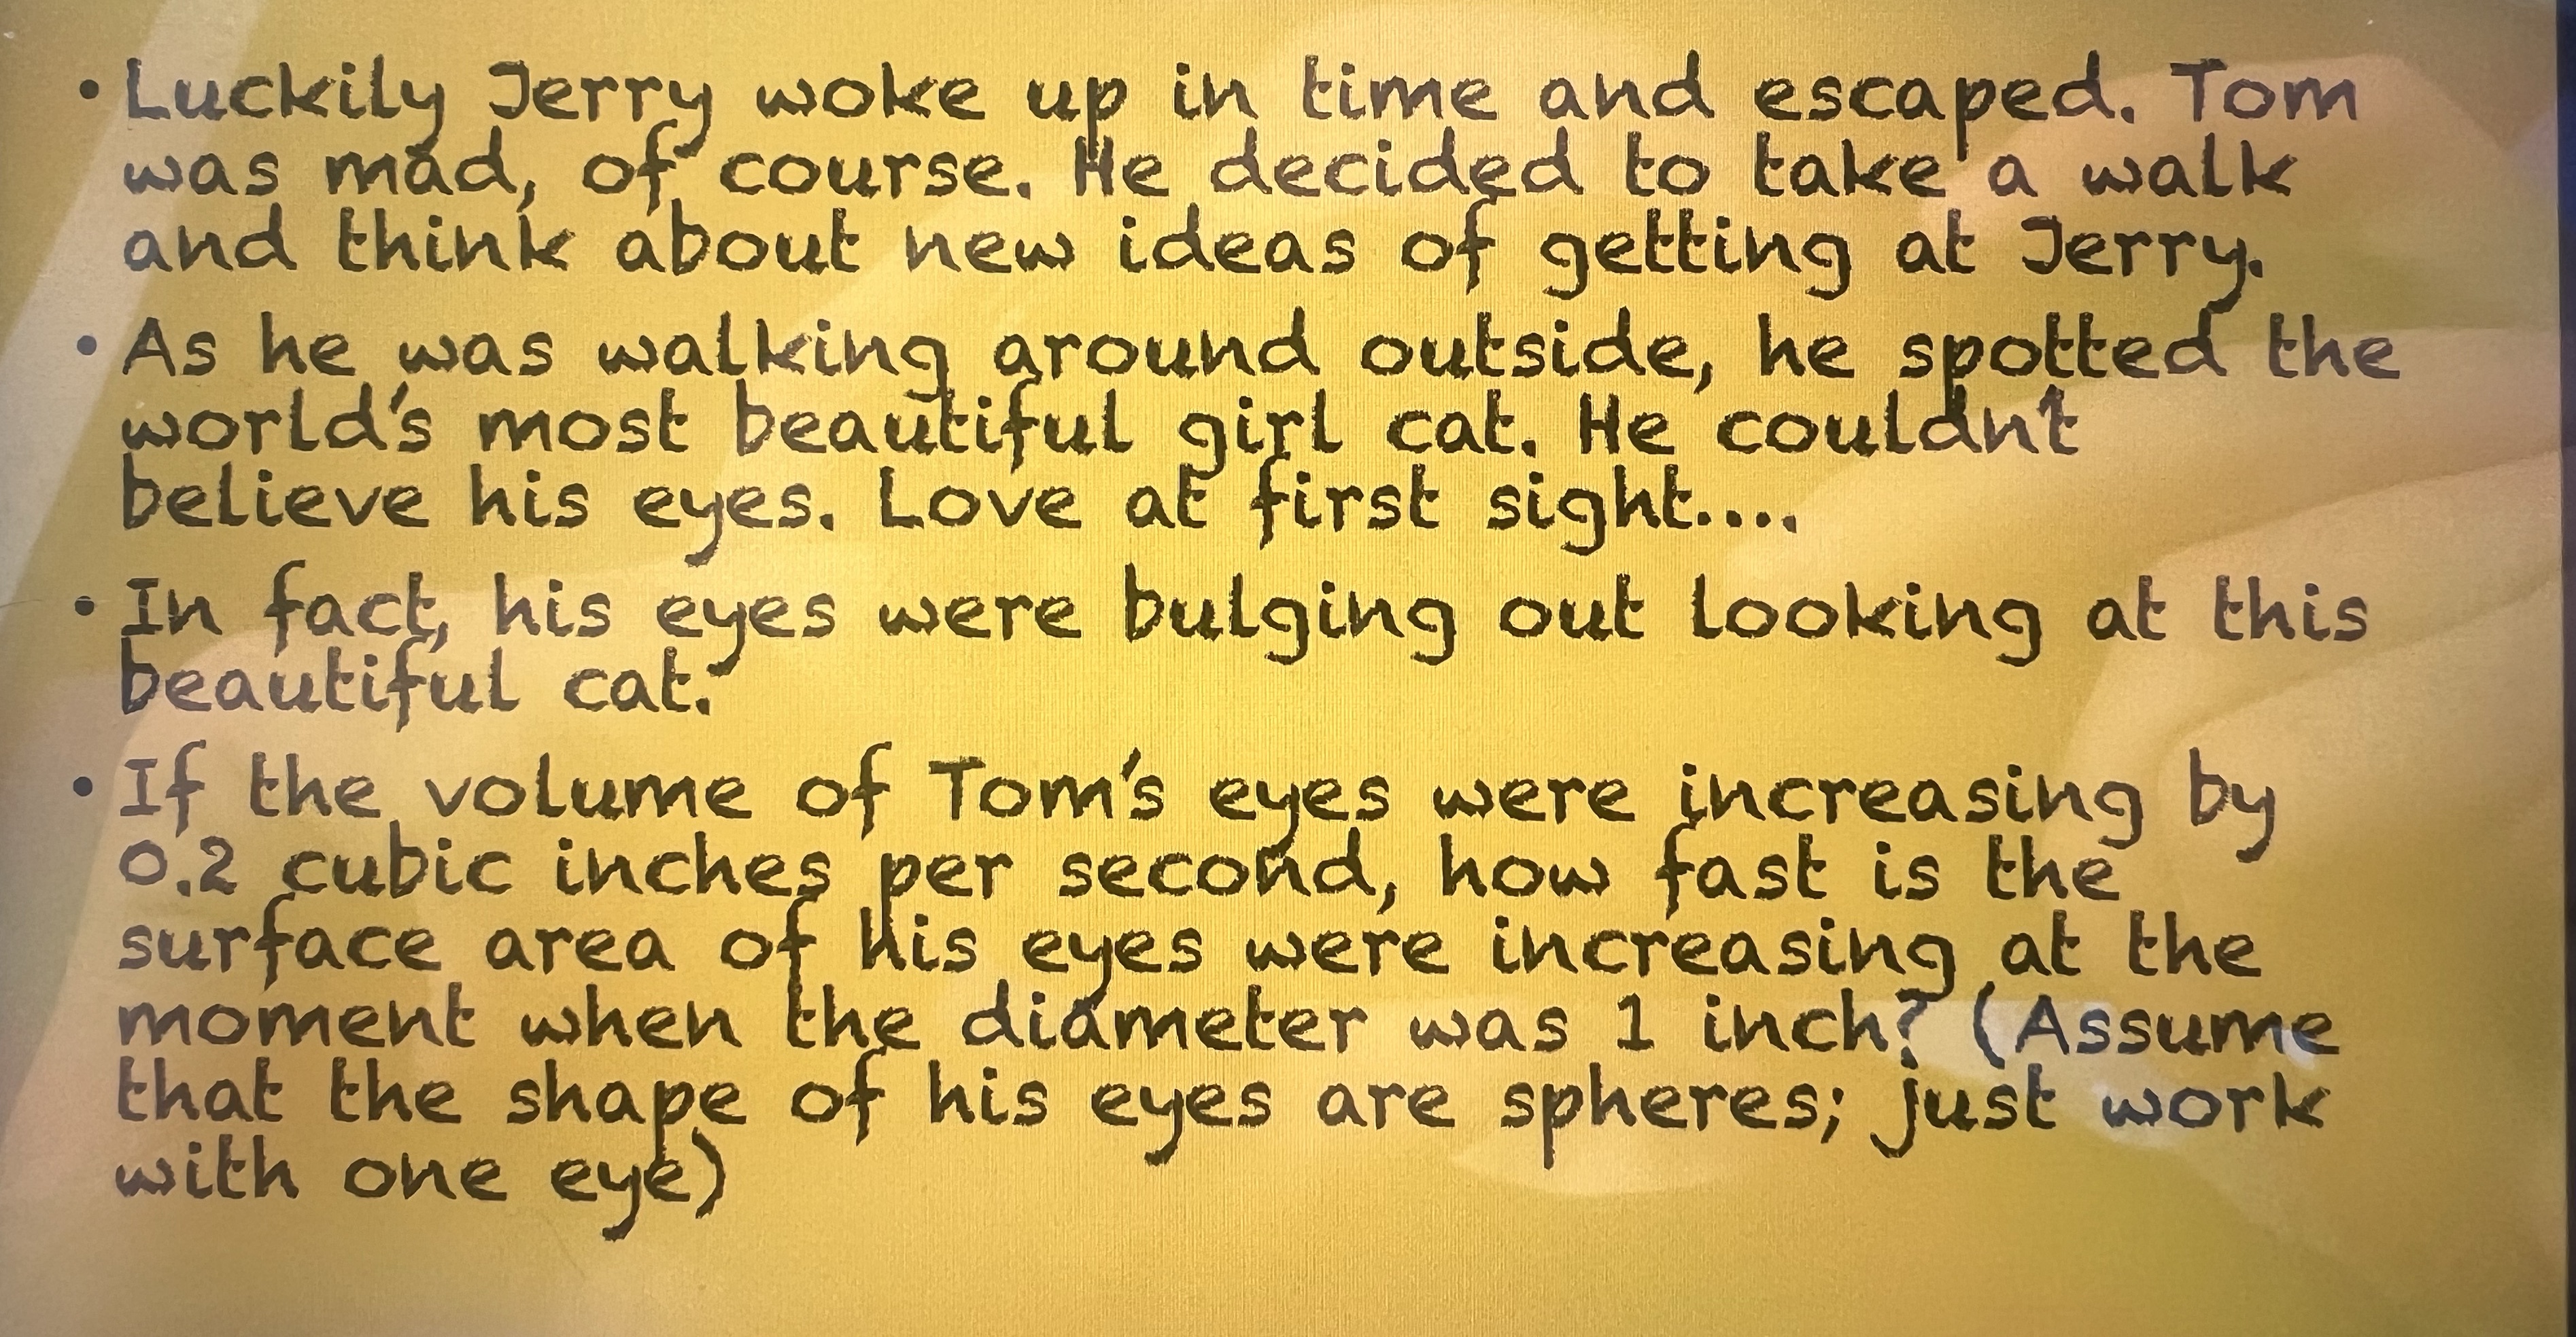 • Luckily Jerry woke up in time and escaped. Tom
was mad, of course. He decided to take a walk
and think about new ideas of getting at Jerry.
• As he was walking around outside, he spotted the
world's most beautiful girl cat. He couldn't
believe his eyes. Love at first sight....
• In fact, his eyes were bulging out looking at this
beautiful cat.
• If the volume of Tom's eyes were increasing by
0.2 cubic inches per second, how fast is the
surface area of his eyes were increasing at the
moment when the diameter was 1 inch? (Assume
that the shape of his eyes are spheres; just work
with one eye)